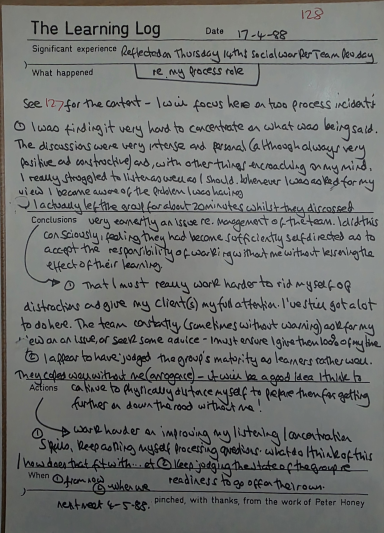 128
The Learning Log Date 17-4-88
Significant experience Reflected on Thursday 14ths Social Team Dev day
What happened re. my process role
See 127 for the content - I will focus here on two process incidents
① I was finding it very hard to concentrate on what was being said.
The discussions were very intense and personal (although always very
positive and constructive) and, with other things encroaching on my mind,
I really struggled to listen as well as I should. Whenever I was asked for my
view I became aware of the problem I was having
I actually left the group for about 20 minutes whilst they discussed
Conclusions very earnestly an issue re. management of the team. I did this
consciously, feeling they had become sufficiently self directed as to
accept the responsibility of working without me without lessening the
effect of their learning.
① That I most really work harder to rid myself of
distractions and give my client(s) my full attention. I've still got a lot
to do here. The team constantly (sometimes without warning) ask for my
view on an issue, or seek some advice - I must ensure I give them 100% of my time
② I appear to have judged the group's maturity as learners rather well.
They coped okay without me (arrogance) - it will be a good idea I think to
Actions continue to physically distance myself to prepare them for getting
further on down the road without me!
① Work harder on improving my listening / concentration
skills, keep asking myself processing questions. what do I think of this
/ how does that fit with... etc ② Keep judging the state of the group re
When ① from now readiness to go off on their own.
② when we
next meet 4-5-88. pinched, with thanks, from the work of Peter Honey